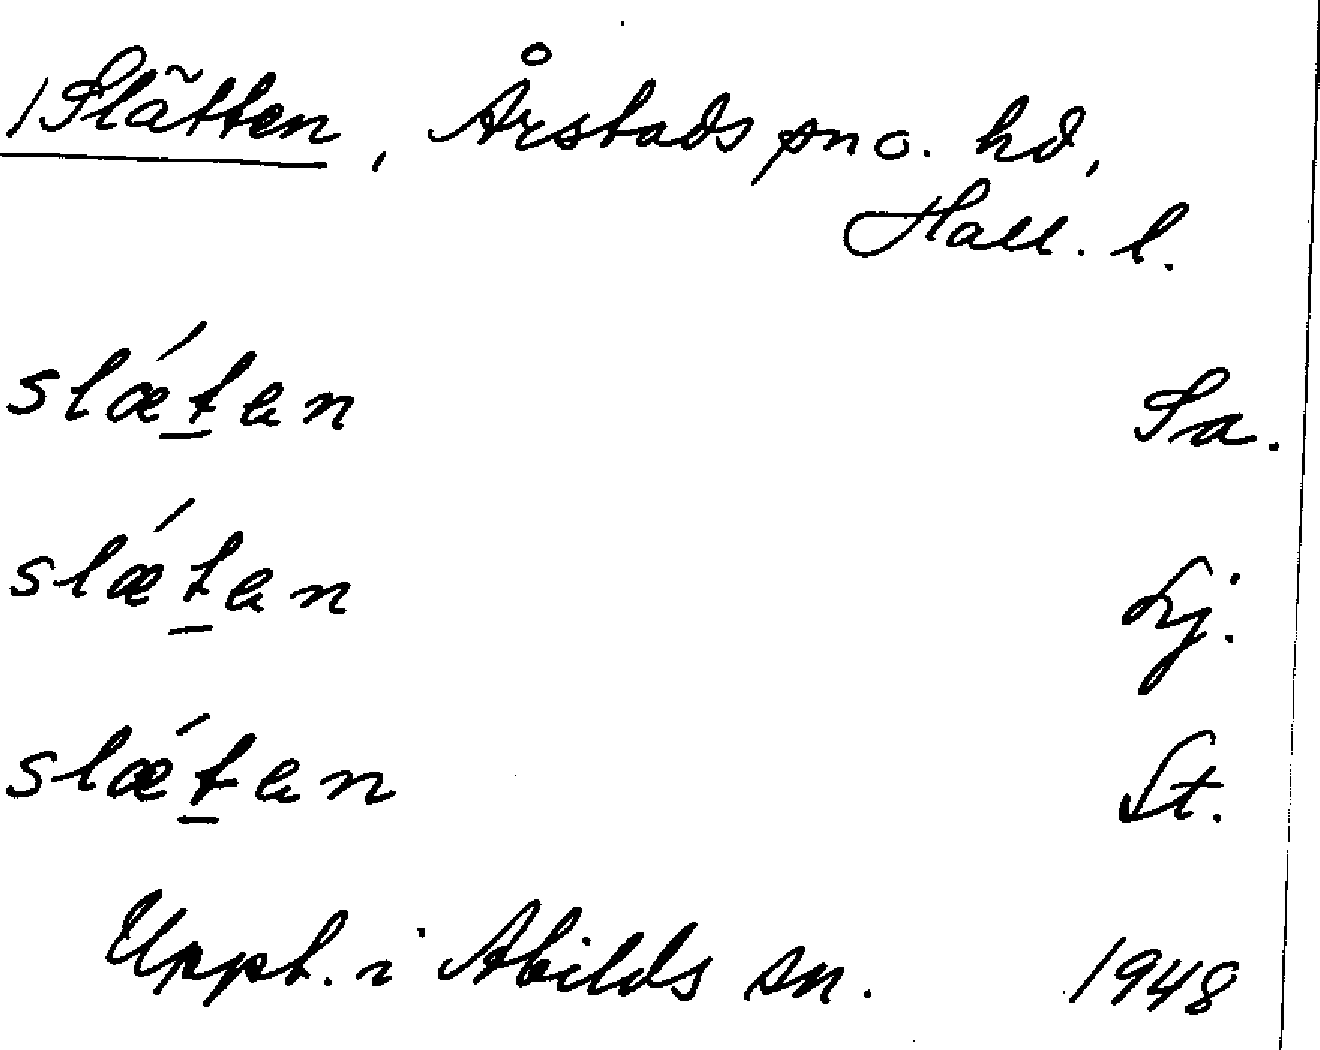 /Slätten, Årstads sn o. hd,
Hall. l.
slǽt̲ɐn Sa.
slǽt̲ɐn Lj.
slǽt̲ɐn St.
Uppt. i Abilds sn. 1948